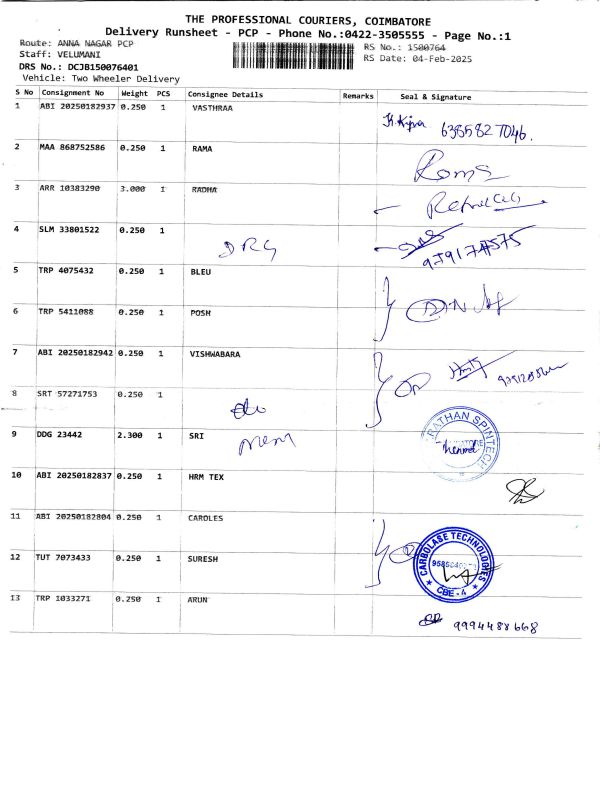 THE PROFESSIONAL COURIERS, COIMBATORE
Delivery Runsheet - PCP - Phone No.:0422-3505555 - Page No.:1
Route: ANNA NAGAR PCP
RS No.: 1500764
Staff: VELUMANI
RS Date: 04-Feb-2025
DRS No.: DCJB150076401
Vehicle: Two Wheeler Delivery
S No Consignment No Weight PCS Consignee Details Remarks Seal & Signature
1 ABI 20250182937 0.250 1 VASTHRAA
6385827046.
2 MAA 868752586 0.250 1 RAMA
Roma
3 ARR 10383290 3.000 1 RADHA
4 SLM 33801522 0.250 1
DRG
5 TRP 4075432 0.250 1 BLEU
6 TRP 5411088 0.250 1 POSH
7 ABI 20250182942 0.250 1 VISHWABARA
8 SRT 57271753 0.250 1
9 DDG 23442 2.300 1 SRI
RATHAN SPINTECH
10 ABI 20250182837 0.250 1 HRM TEX
11 ABI 20250182804 0.250 1 CAROLES
CARBOLASE TECHNOLOGIES
CBE - 4
12 TUT 7073433 0.250 1 SURESH
13 TRP 1033271 0.250 1 ARUN
9994488668